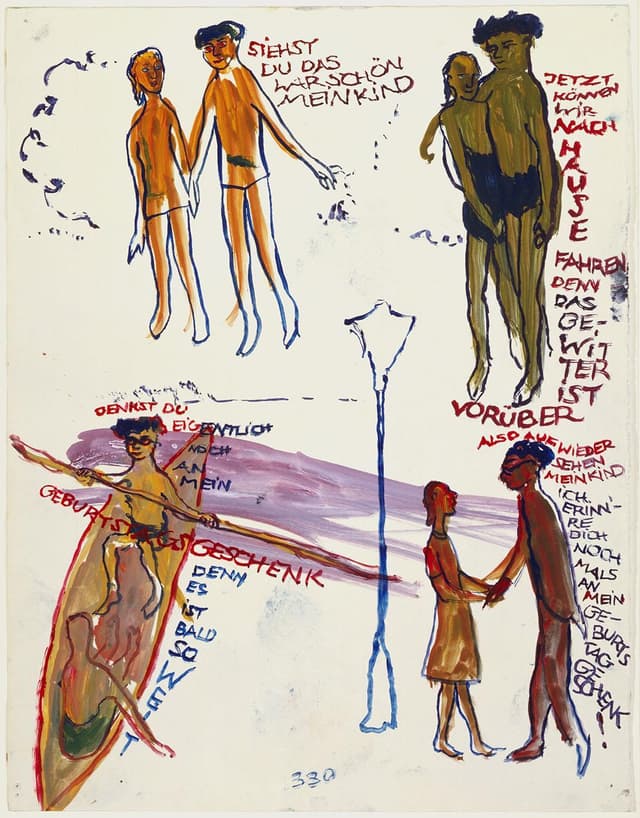 SIEHST
DU DAS
WAR SCHÖN
MEIN KIND
JETZT
KÖNNEN
WIR
NACH
HAUSE
FAHREN
DENN
DAS
GE-
WIT
TER
IST
VORÜBER
DENKST DU
EIGENTLICH
NOCH
AN
MEIN
GEBURTSTAGSGESCHENK
DENN
ES
IST
BALD
SO
WEIT
ALSO AUF WIEDER
SEHEN
MEIN KIND
ICH
ERINN-
RE
DICH
NOCH
MALS
AN
MEIN
GE-
BURTS
TAG
GESCHENK
!
330